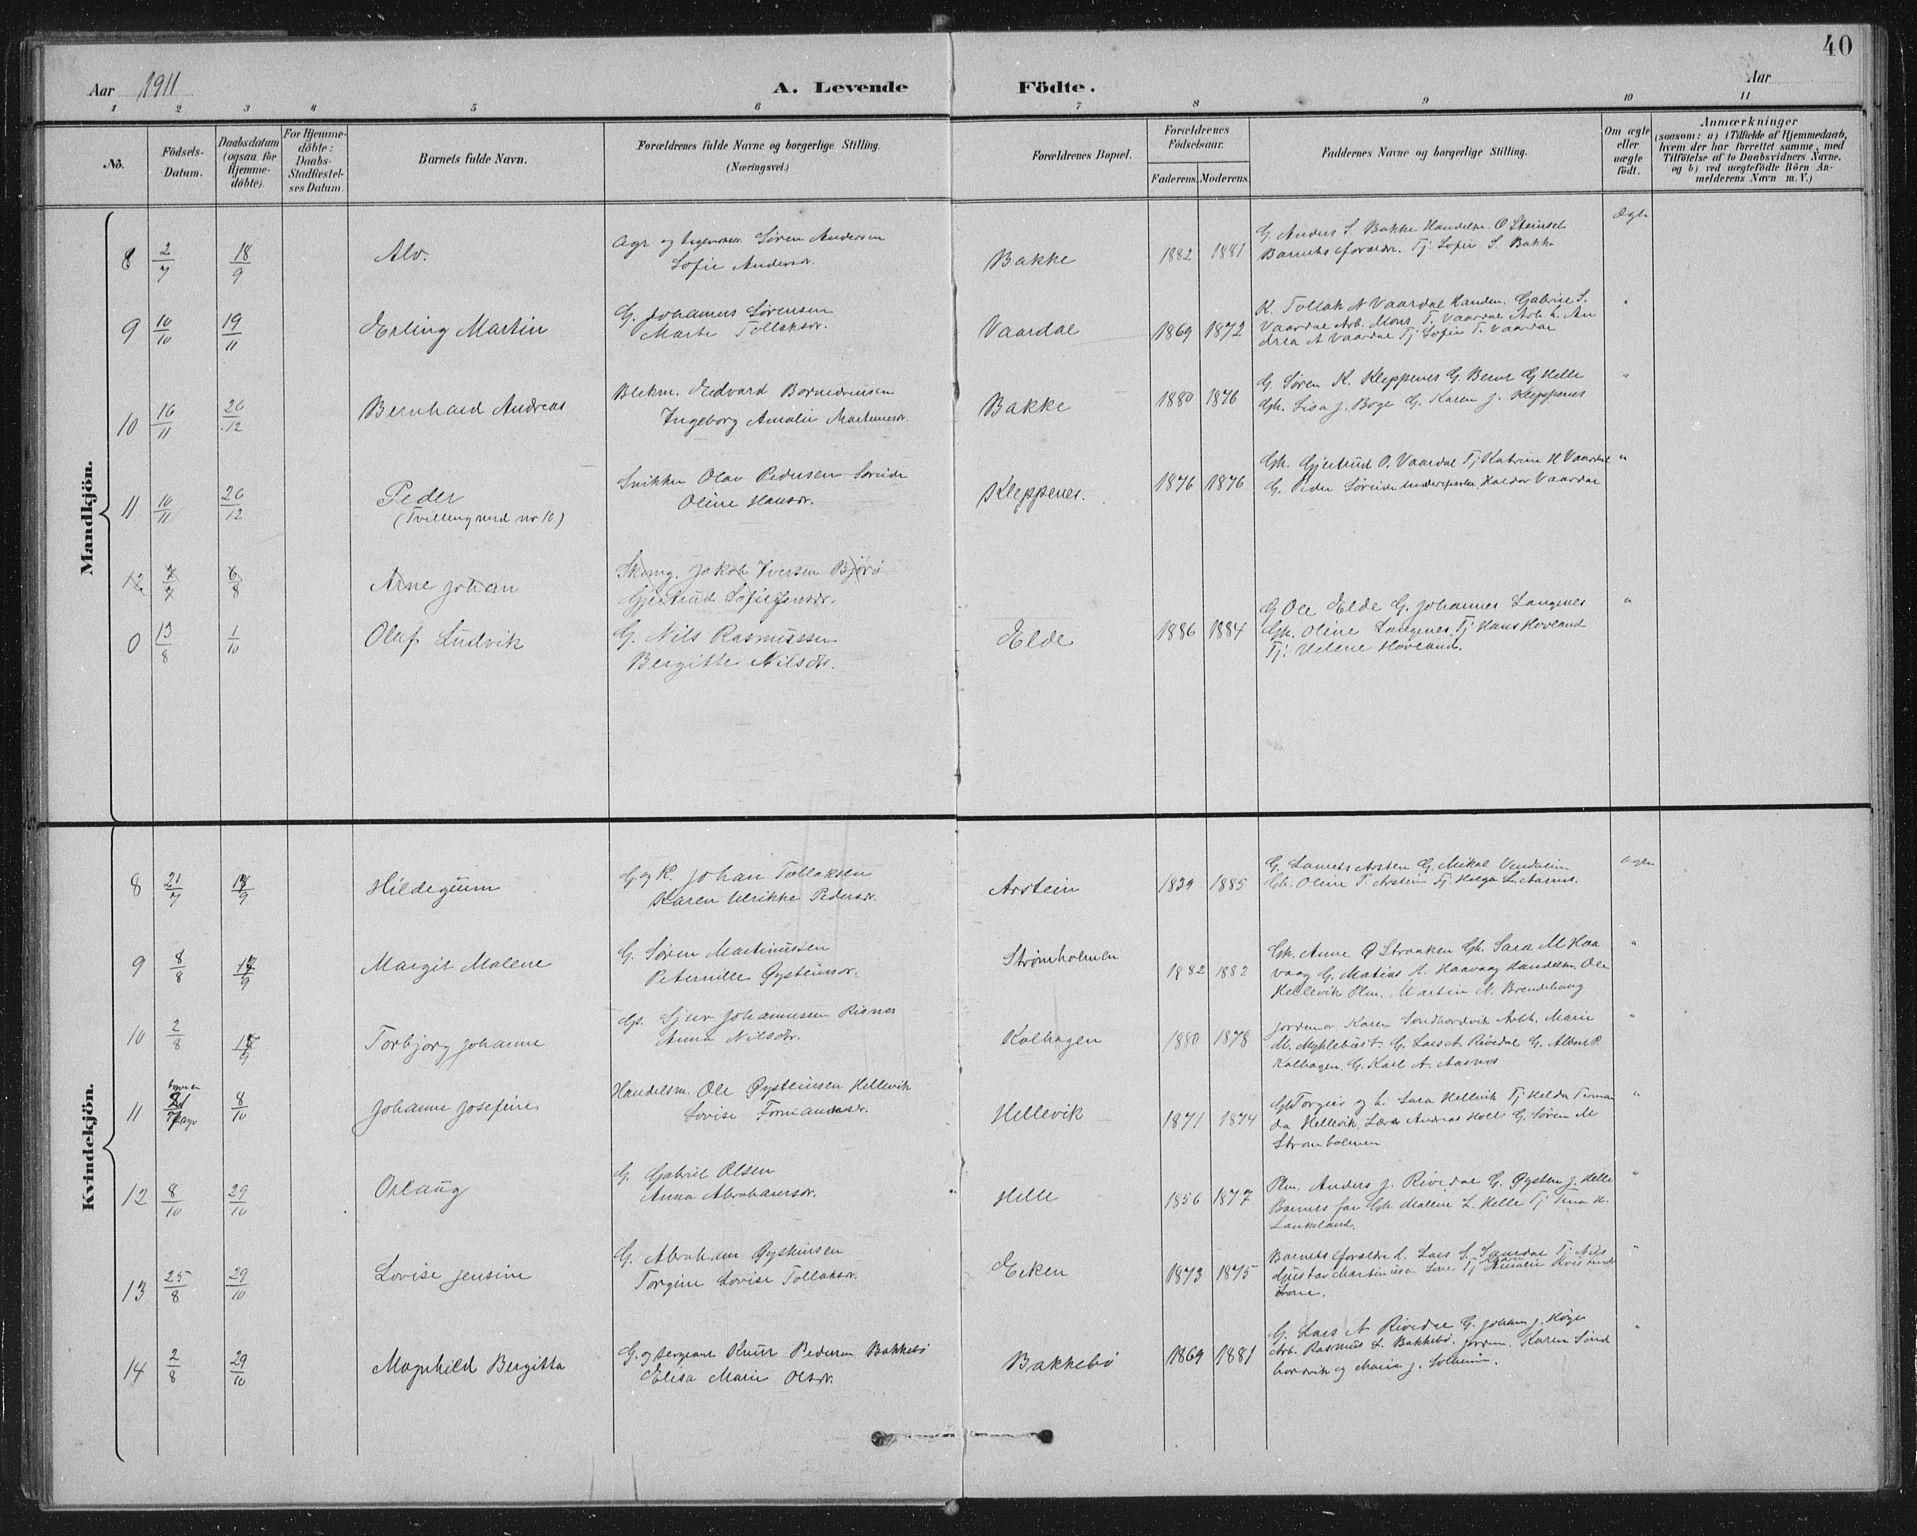 40
Aar 1911 A. Levende Födte. Aar
1 2 3 4 5 6 7 8 9 10 11
No. Födsels-Datum. Daabsdatum (ogsaa for Hjemme-döbte). For Hjemme-döbte: Daabs-Stadfestel-ses Datum. Barnets fulde Navn. Forældrenes fulde Navne og borgerlige Stilling. (Næringsvei.) Forældrenes Bopæl. Forældrenes Födselsaar. Faderens. Moderens. Faddernes Navne og borgerlige Stilling. Om ægte eller uægte födt. Anmærkninger (saasom: a) i Tilfælde af Hjemmedaab, hvem der har forrettet samme, med Tilföielse af to Daabsvidners Navne, og b) ved uægtefödte Börn An-melderens Navn m. V.)
Mandkjön.
8 2/7 18/9 Alv. Søren Andersen
Sofie Andersdr. Bakke 1882 1881 G. Anders S Bakke Handelsm. O Steinset
Barnets forældre. Tj. Sofie S. Bakke
9 10/10 19/11 Erling Martin G. Johannes Sørensen
Marte Tollaksdr. Vaardal 1869 1872 K. Tollak A Vaardal Gabriel S.
Vaardal Arb. Mons T. Vaardal Arb. k. An
drea A Vaardal Tj Sofie T. Vaardal
10 16/11 26/12 Bernhard Andreas Blekm. Edvard
Ingeborg Amalie Bakke 1880 1876 G. Søren K. Kleppenes G. Bernt G Helle
Gk. Lisa J. Boge G. Karen J. Kleppenes
11 10/11 26/12 Peder
(Tvilling med nr 10) Snikker Olav Pedersen Søreide
Oline Hansdr. Kleppenes. 1876 1876 Gk. Gjertrud O. Vaardal Tj Katrine H Vaardal
G. Peder Søreide Haldor Vaardal
12 7/7 6/8 Arne Johan Skomg. Jakob Iversen Bjørø
Gjertrud Sofie Jensdr.
0 13/8 1/10 Olaf Ludvik G. Nils Rasmussen
Bergitte Nilsdr. Elde 1886 1884 G Ole Elde G. Johannes Langenes
Gk. Oline Langenes. Tj Hans Hovland
Tj. Helene Hovland.
Kvindekjön.
8 21/7 Hildegunn G. og K. Johan Tollaksen
Karen Ulrikke Pedersdr. Arstein 1839 1885 G. Laurits Arstein G. Mikal Vendalin
Gk. Oline T. Arstein Tj. Helga L. Aasnes.
9 8/8 Margit Malene G. Søren Martinussen
Peternille Øysteinsdr. Strømholmen 1882 1882 Gk. Anne Ø Straaken Gk. Sara M Haa
vaag G. Matias H. Haavaag Handelsm. Ole
Hellevik Plm. Martin N. Brendehaug
10 2/8 Torbjørg Johanne Gb. Sjur Johannesen Risnes
Anna Nilsdr. Kolhagen 1880 1878 Jordmor Karen Sandhordvik Arbk. Marie
M. Myklebust G. Lars A Rivedal G. Albert P.
Kolhagen. G. Karl A. Aasnes
11 8/10 Johanne Josefine Handelsm. Ole Øysteinsen Hellevik
Lovise Hellevik 1871 1874 Gk Torgier og k. Sara Hellevik Tj Helda
Hellevik. Lærer Andreas Holt G. Søren M
Strømholmen
12 8/10 29/10 Orlaug G. Gabriel Olsen
Anna Abrahamsdr. Helle 1856 1877 Plm. Anders J. Rivedal G. Øysten J. Helle
Barnets far Gk. Malene L. Helle Tj Tina H.
Lankeland.
13 25/8 29/10 Lovise Jensine G. Abraham Øysteinsen
Torgine Lovise Tollaksdr. Eken 1873 1875 Barnets forældre K. Lars S. Tj. Nils
Gustav Martinusen Tj Amalie
14 2/8 29/10 Magnhild Bergitta G. og sergeant Knut Pedersen Bakkebø
Elisa Marie Olsdr. Bakkebø 1869 1881 G. Lars A Rivedal G. Johan J. Høge
Arb. Rasmus L Bakkebø. Jordm. Karen Sand
hordvik og Marie J. Solheim.